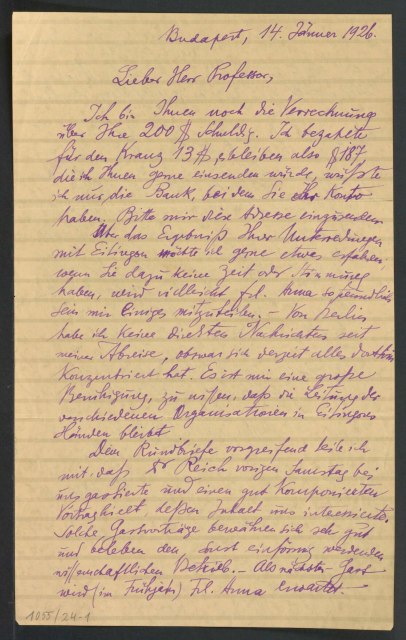 Budapest, 14. Jänner 1926.
Lieber Herr Professor,
Ich bin Ihnen noch die Verrechnung
über Ihre 200 $ schuldig. Ich bezahlte
für den Kranz 13 $, es bleiben also $ 187
die ich Ihnen gerne einsenden würde, wüßte
ich nur die Bank, bei dem Sie Ihr Konto
haben. Bitte mir diese Adresse einzusenden
Über das Ergebniß Ihrer Unterredungen
mit Eitingon möchte ich gerne etwas erfahren,
wenn Sie dazu keine Zeit oder Stimmung
haben, wird vielleicht Frl. Anna so freundlich
sein mir Einiges mitzuteilen. – Von Berlin
habe ich keine direkten Nachrichten seit
meiner Abreise, obzwar sich derzeit alles dorthin
Konzentriert hat. Es ist mir eine große
Beruhigung, zu wissen, daß die Leitung der
verschiedenen Organisationen in Eitingons
Händen bleibt.
Dem Rundbriefe vorgreifend teile ich
mit, daß Dr Reich vorigen Samstag bei
uns gastierte und einen gut Komponierten
Vortrag hielt, deßen Inhalt uns interessierte.
Solche Gastvorträge bewähren sich sehr gut
und beleben den sonst einförmig werdenden
wissenschaftlichen Betrieb. – Als nächster Gast
wird (im Frühjahr) Frl. Anna erwartet.
1055/24-1